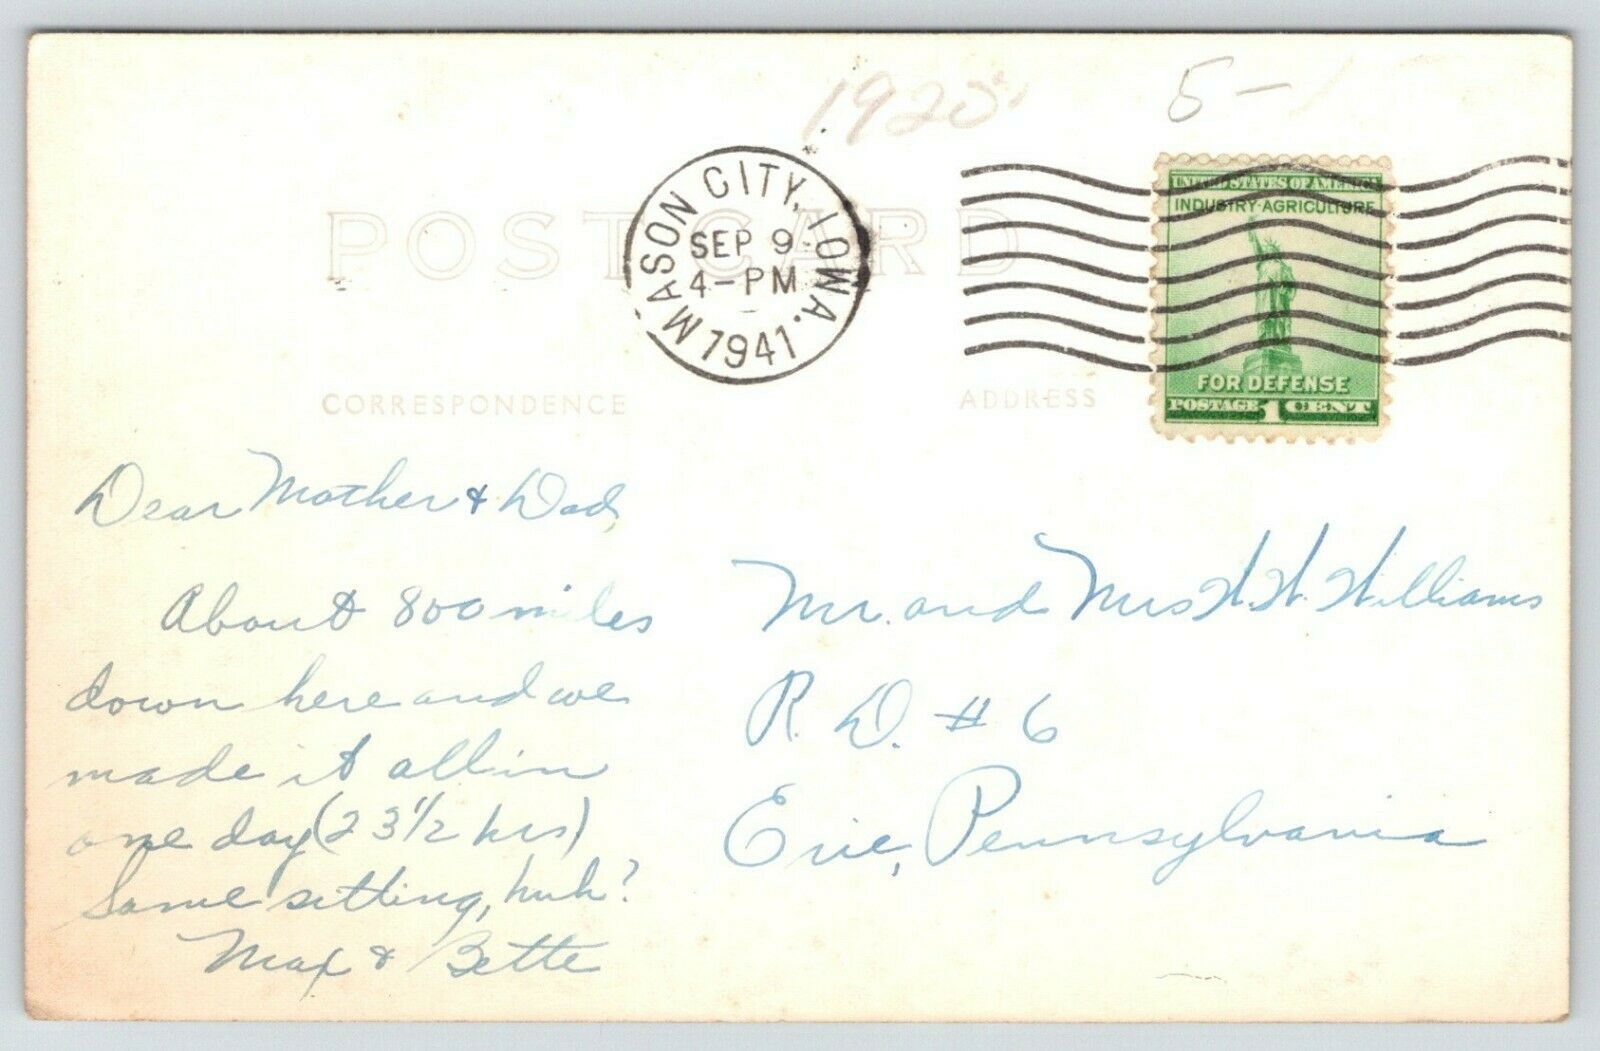 1920s
5-
MASON CITY, IOWA.
SEP 9
4-PM
1941
UNITED STATES OF AMERICA
INDUSTRY-AGRICULTURE
FOR DEFENSE
POSTAGE 1 CENT
POST CARD
CORRESPONDENCE
ADDRESS
Dear Mother & Dad,
About 800 miles
down here and we
made it all in
one day (23 1/2 hrs)
Some sitting, huh?
Max & Bette
Mr. and Mrs W. W. Williams
R. D. # 6
Erie, Pennsylvania